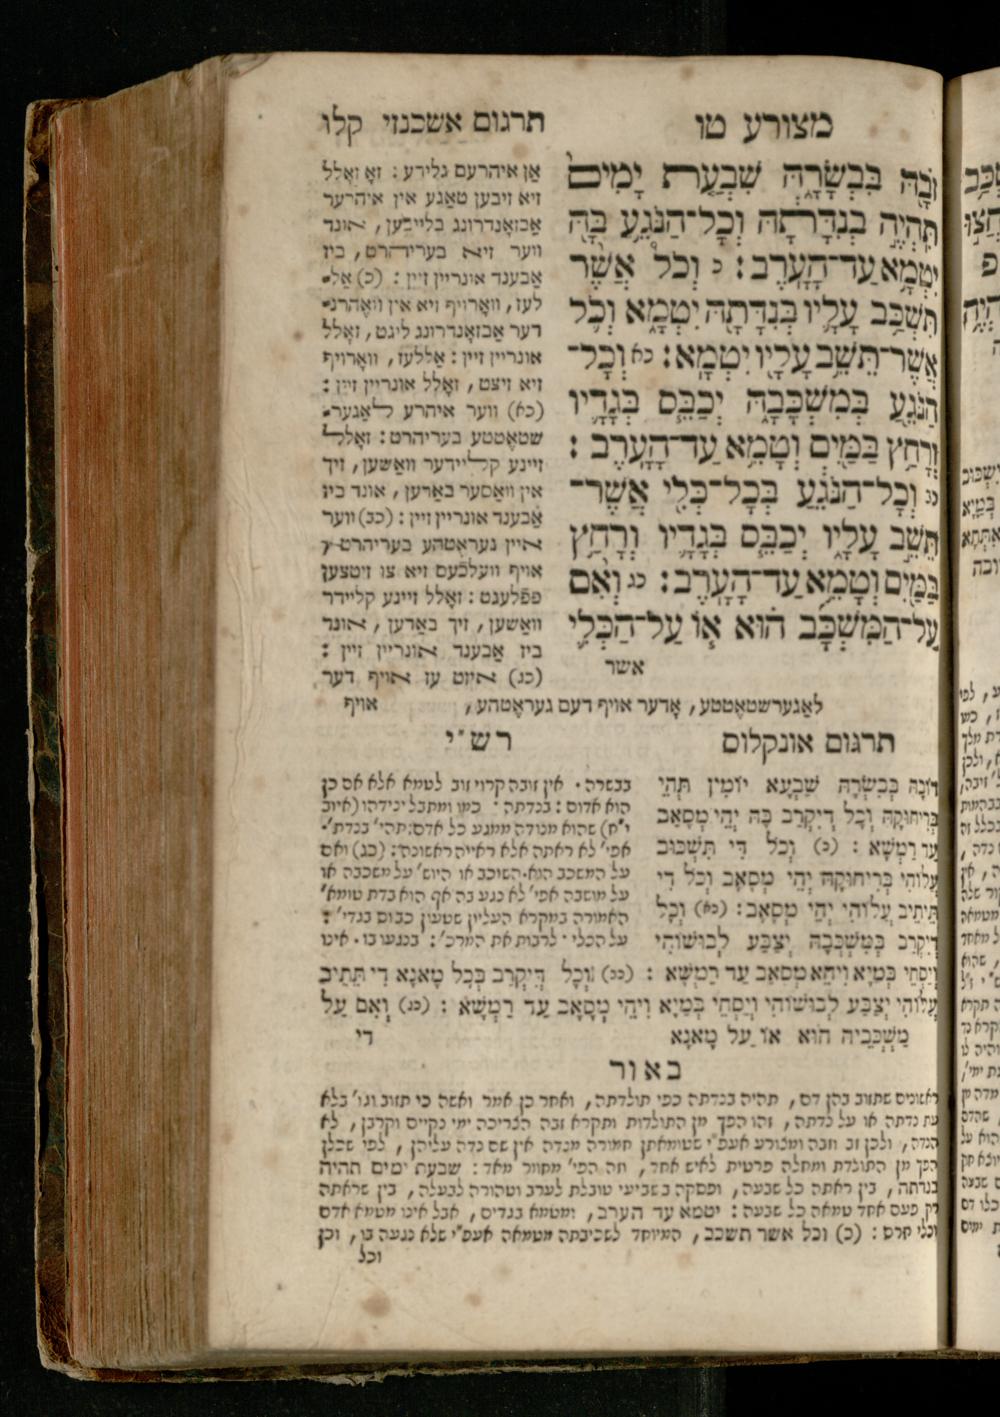 מצורע טו
תרגום אשכנזי קלו
זֹבָהּ בִּבְשָׂרָהּ שִׁבְעַת יָמִים
תִּהְיֶה בְנִדָּתָהּ וְכָל־הַנֹּגֵעַ בָּהּ
יִטְמָא עַד־הָעָרֶב : כ וְכֹל אֲשֶׁר
תִּשְׁכַּב עָלָיו בְּנִדָּתָהּ יִטְמָא וְכֹל
אֲשֶׁר־תֵּשֵׁב עָלָיו יִטְמָא : כא וְכָל־
הַנֹּגֵעַ בְּמִשְׁכָּבָהּ יְכַבֵּס בְּגָדָיו
וְרָחַץ בַּמַּיִם וְטָמֵא עַד־הָעָרֶב :
כב וְכָל־הַנֹּגֵעַ בְּכָל־כְּלִי אֲשֶׁר־
תֵּשֵׁב עָלָיו יְכַבֵּס בְּגָדָיו וְרָחַץ
בַּמַּיִם וְטָמֵא עַד־הָעָרֶב : כג וְאִם
עַל־הַמִּשְׁכָּב הוּא אוֹ עַל־הַכְּלִי
אשר
אַן איהרעם גלידע : זאָ זאָלל
זיא זיבען טאַגע אין איהרער
אַבזאָנדרונג בלייבען , אונד
ווער זיא בעריהרט , ביז
אַבענד אונריין זיין : (כ) אַל־
לעז , וואָרויף זיא אין וואָהרנ־
דער אַבזאָנדרונג ליגט , זאָלל
אונריין זיין : אַללעז , וואָרויף
זיא זיצט , זאָלל אונריין זיין :
(כא) ווער איהרע לאַגער־
שטאָטטע בעריהרט : זאָלל
זיינע קליידער וואַשען , זיך
אין וואַסער באַדען , אונד ביז
אַבענד אונריין זיין : (כב) ווער
איין געראָטהע בעריהרט ,
אויף וועלכעס זיא צו זיטצען
פפלעגט : זאָלל זיינע קליידר
וואַשען , זיך באַדען , אונד
ביז אַבענד אונריין זיין :
(כג) איזט עז אויף דער
לאַגערשטאָטטע , אָדער אויף דעם געראָטהע , אויף
תרגום אונקלוס
דוֹבָהּ בְּבִשְׂרָהּ שַׁבְעָא יוֹמִין תְּהֵי
בְּרִיחוּקָהּ וְכָל דְּיִקְרַב בַּהּ יְהֵי מְסָאַב
עַד רַמְשָׁא : (כ) וְכֹל דִּי תִשְׁכּוּב
עֲלוֹהִי בְּרִיחוּקָהּ יְהֵי מְסָאָב וְכֹל דִּי
תֵיתֵיב עֲלוֹהִי יְהֵי מְסָאָב : (כא) וְכָל
דְּיִקְרַב בְּמִשְׁכְּבָהּ יְצַבַּע לְבוּשׁוֹהִי
וְיַסְחֵי בְמַיָא וִיהֵא מְסָאַב עַד רַמְשָׁא : (כב) וְכָל דְּיִקְרַב בְּכָל מָאנָא דִי תֵתֵיב
עֲלוֹהִי יְצַבַּע לְבוּשׁוֹהִי וְיַסְחֵי בְמַיָא וִיהֵי מְסָאָב עַד רַמְשָׁא : (כג) וְאִם עַל
מִשְׁכְּבֵיה הוּא אוֹ עַל מָאנָא די
רש"י
בבשרה · אין זובה קרוי זוב לטמא אלא אם כן
הוא אדום : בנדתה · כמו ומתבל ינידהו (איוב
י"ח) שהוא מנודה ממגע כל אדם : תהי' בנדת'·
אפי' לא ראתה אלא ראייה ראשונה : (כג) ואם
על המשכב הוא · השוכב או היוש' על משכבה או
על מושבה אפי' לא נגע בה אף הוא בדת טומא'
האמורה במקרא העליון שטעון כבוס בגדי' :
על הכלי · לרבות את המרכ' : בנגעו בו · אינו
באור
ראשונים שתזוב בהן דם , תהיה בנדתה כפי תולדתה , ואחר כן אמר ואשה כי תזוב וגו' בלא
עת נדתה או על נדתה , זהו הפך מן התולדות ותקרא זבה הצריכה ימי נקיים וקרבן , לא
הנדה , ולכן זב וזבה ומצורע אעפ"י שטומאתן חמורה מנדה אין שם נדה עליהן , לפי שכלן
הפך מן התולדת ומחלה פרטית לאיש אחד , וזה הפי' מחוור מאד : שבעת ימים תהיה
בנדתה , בין ראתה כל שבעה , ופסקה בשביעי טובלת לערב וטהורה לבעלה , בין שראתה
רק פעם אחד טמאה כל שבעה : יטמא עד הערב , ומטמא בגדים , אבל אינו מטמא אדם
וכלי חרס : (כ) וכל אשר תשכב , המיוחד לשכיבתה מטמאה אעפ"י שלא נגעה בו , וכן
וכל